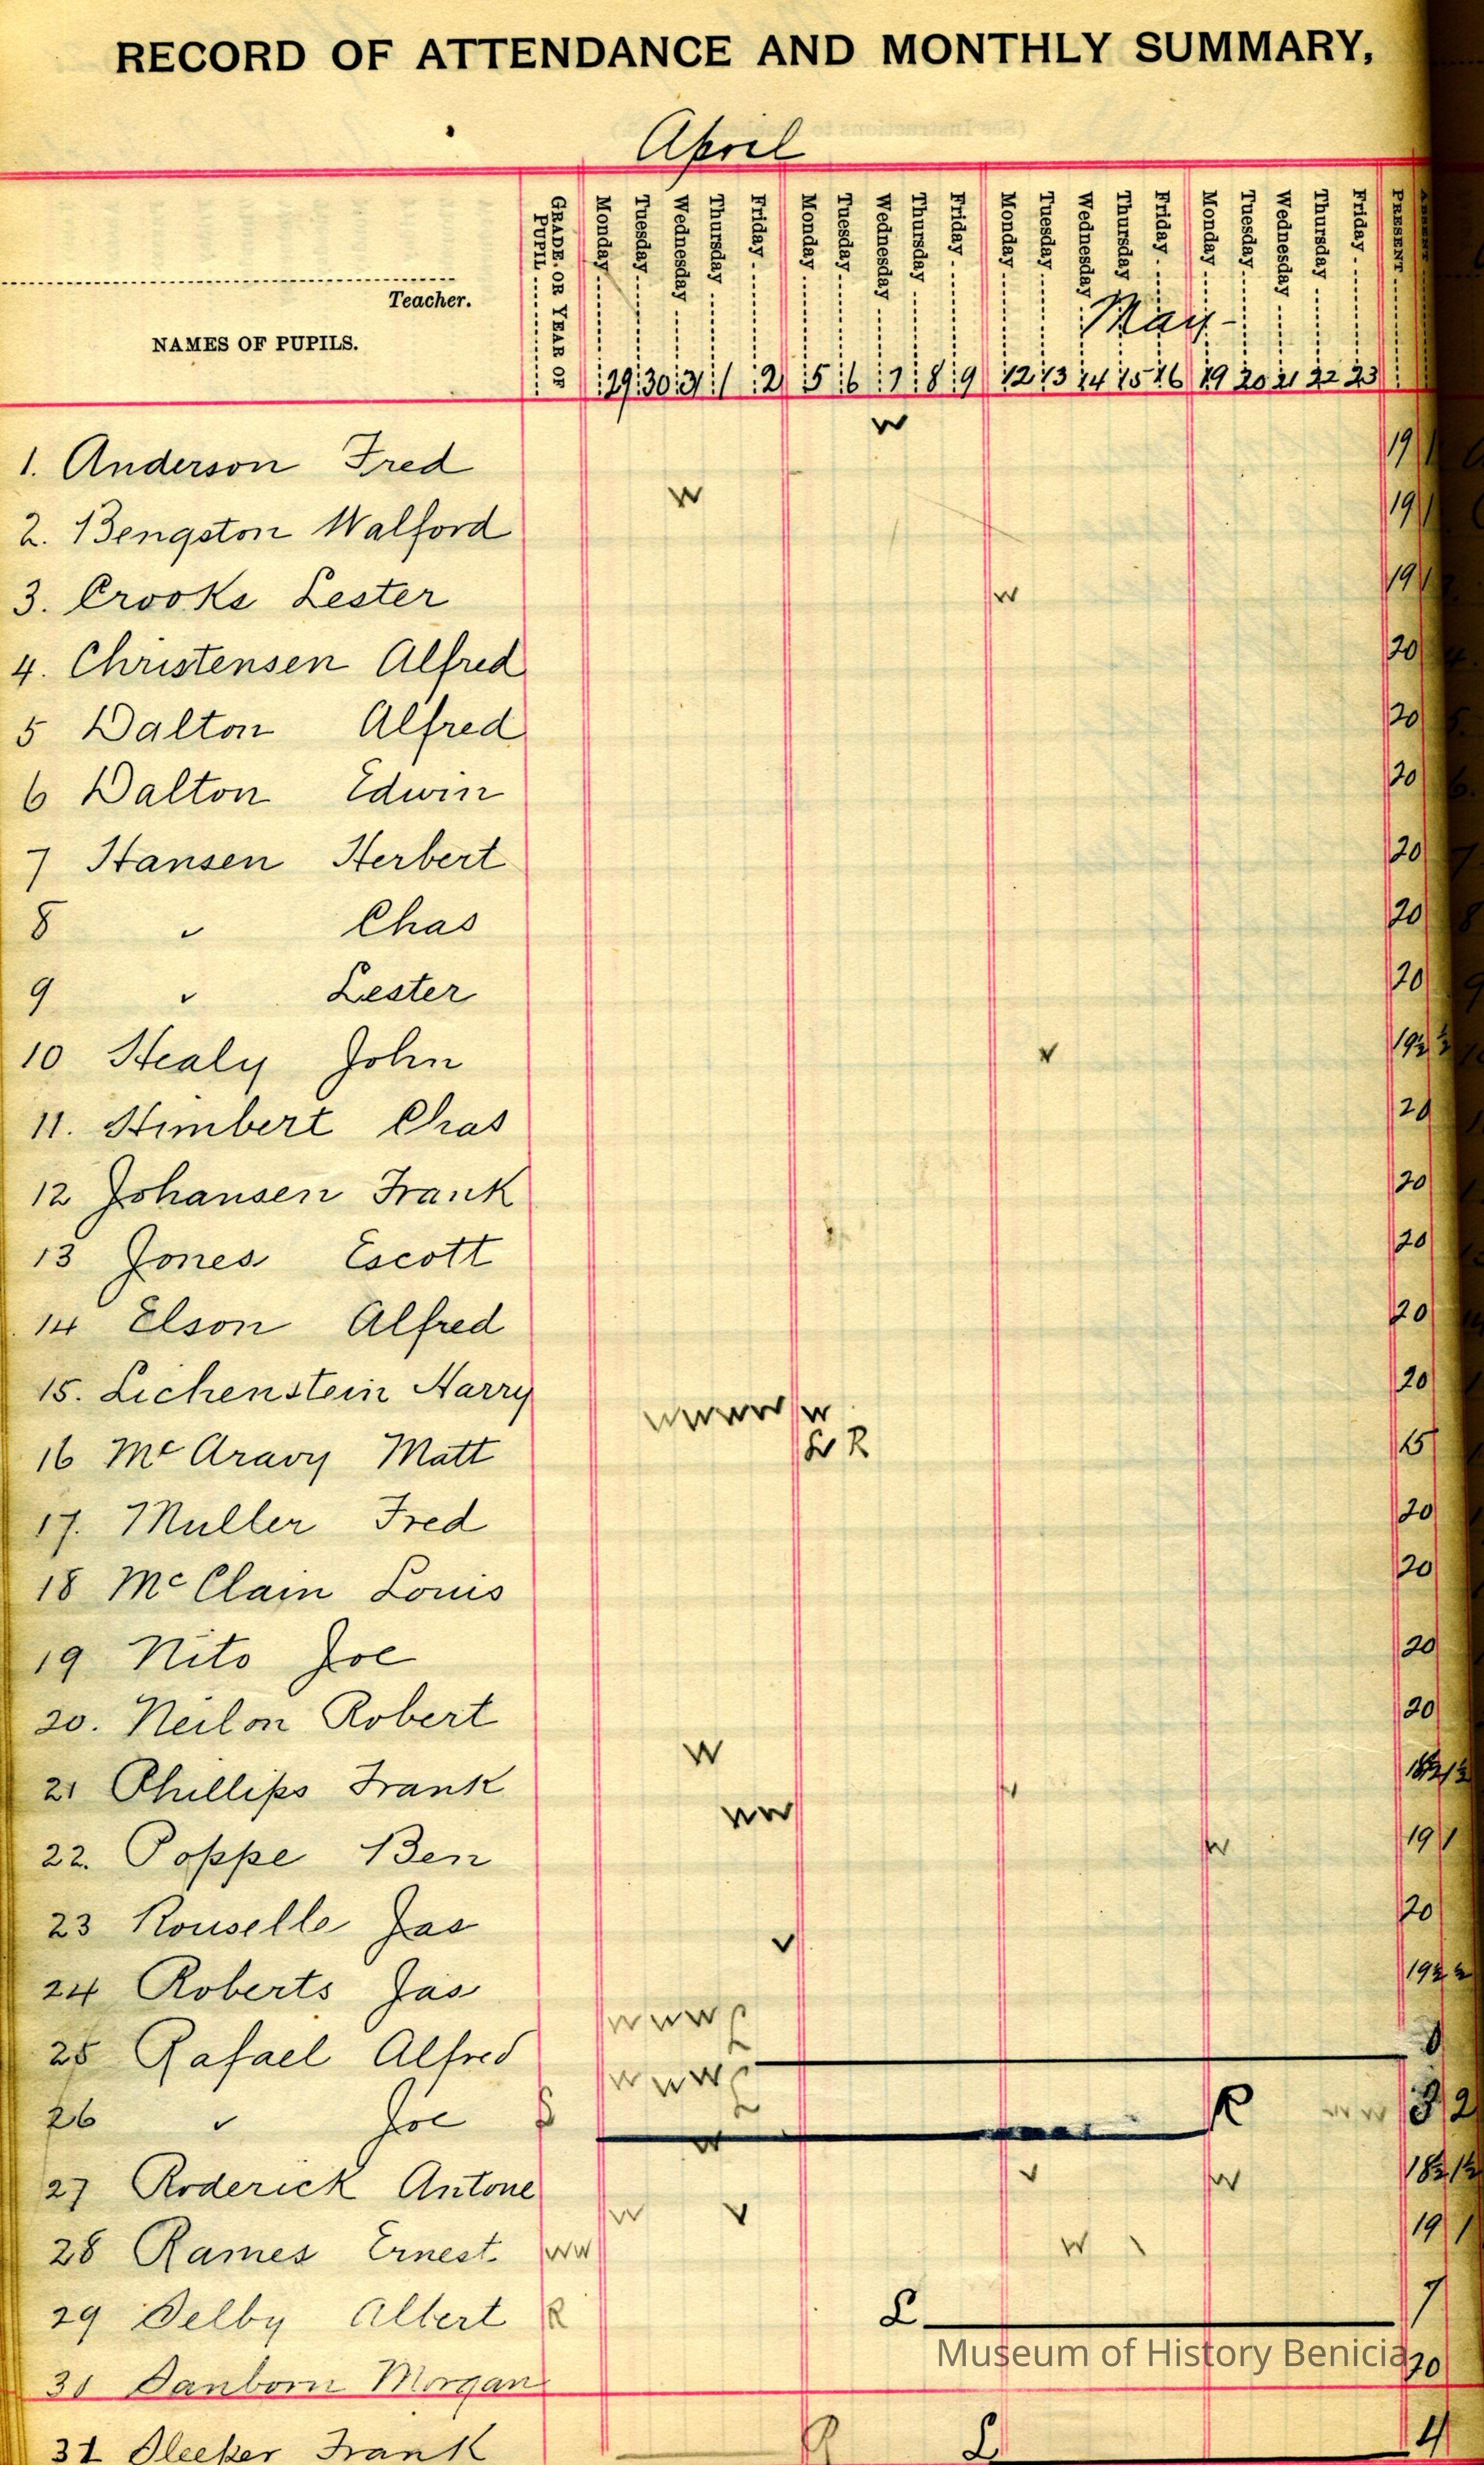 RECORD OF ATTENDANCE AND MONTHLY SUMMARY,
April
Teacher.
NAMES OF PUPILS.
GRADE OR YEAR OF PUPIL
Monday Tuesday Wednesday Thursday Friday Monday Tuesday Wednesday Thursday Friday Monday Tuesday Wednesday Thursday Friday Monday Tuesday Wednesday Thursday Friday PRESENT ABSENT
May-
29 30 31 1 2 5 6 7 8 9 12 13 14 15 16 19 20 21 22 23
W
1. Anderson Fred 19 1
W
2. Bengston Walford 19 1
3. Crooks Lester W 19 1
4. Christensen Alfred 20
5 Dalton Alfred 20
6 Dalton Edwin 20
7 Hansen Herbert 20
8 " Chas 20
9 " Lester 20
10 Healy John v 19½ ½
11. Himbert Chas 20
12 Johansen Frank 20
13 Jones Escott 20
14 Elson Alfred 20
15. Lichenstein Harry 20
W W W W W
16 McAravy Matt R 15
17. Muller Fred 20
18 McClain Louis 20
19 Nito Joe 20
20. Neilon Robert 20
W
21 Phillips Frank v 1½
W W
22. Poppe Ben W 19 1
23 Rouselle Jas 20
v
24 Roberts Jas 19½ ½
W W W L
25 Rafael Alfred 0
W W W L
26 " Joe S R W W 3 2
W
27 Roderick Antone v W 18½ 1½
W v
28 Rames Ernest WW W \ 19 1
29 Selby Albert R L 7
Museum of History Benicia
30 Sanborn Morgan 20
31 Sleeper Frank R L 4